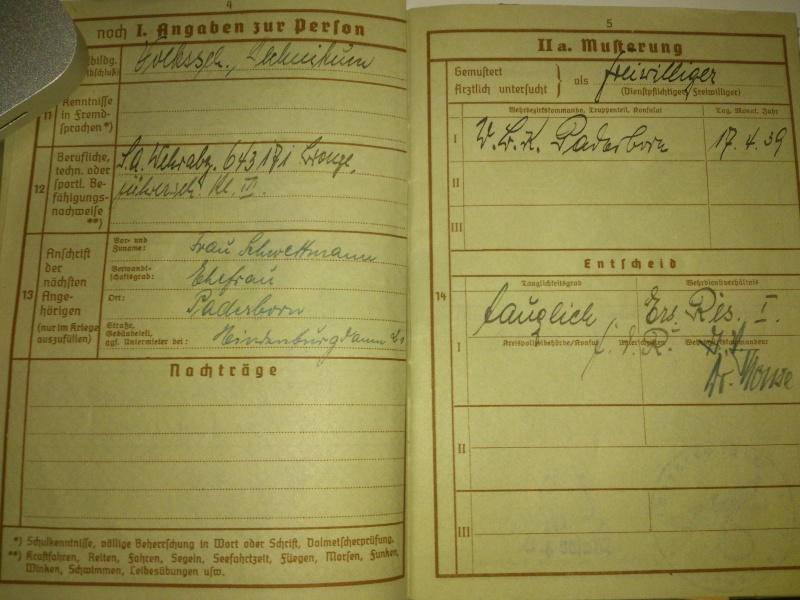 4
noch I. Angaben zur Person
Volkssch., Technikum
11 Kenntnisse
in Fremd-
sprachen *)
12 Berufliche,
techn. oder
sportl. Be-
fähigungs-
nachweise
**)
S.A. Wehrabz. 643171 Bronze,
Führersch. Kl. III.
13 Anschrift
der
nächsten
Ange-
hörigen
(nur im Kriege
auszufüllen)
Vor- und
Zuname:
Frau Schwettmann
Verwandt-
schaftsgrad:
Ehefrau
Ort:
Paderborn
Straße,
Gebäudeteil,
ggf. Untermieter bei:
Hindenburgdamm
Nachträge
*) Schulkenntnisse, völlige Beherrschung in Wort oder Schrift, Dolmetscherprüfung.
**) Kraftfahren, Reiten, Fahren, Segeln, Seefahrtzeit, Fliegen, Morsen, Funken,
Winken, Schwimmen, Leibesübungen usw.
5
II a. Musterung
Gemustert
Ärztlich untersucht } als freiwilliger
(Dienstpflichtiger, Freiwilliger)
Wehrbezirkskommando, Truppenteil, Konsulat
Tag, Monat, Jahr
I W.B.K. Paderborn 17.4.39
II
III
Entscheid
14
Tauglichkeitsgrad
Wehrdienstverhältnis
tauglich Ers. Res. I.
I
Kreispolizeibehörde/Konsul
Unterschriften
Wehrbezirkskommandeur
Dr.
II
III